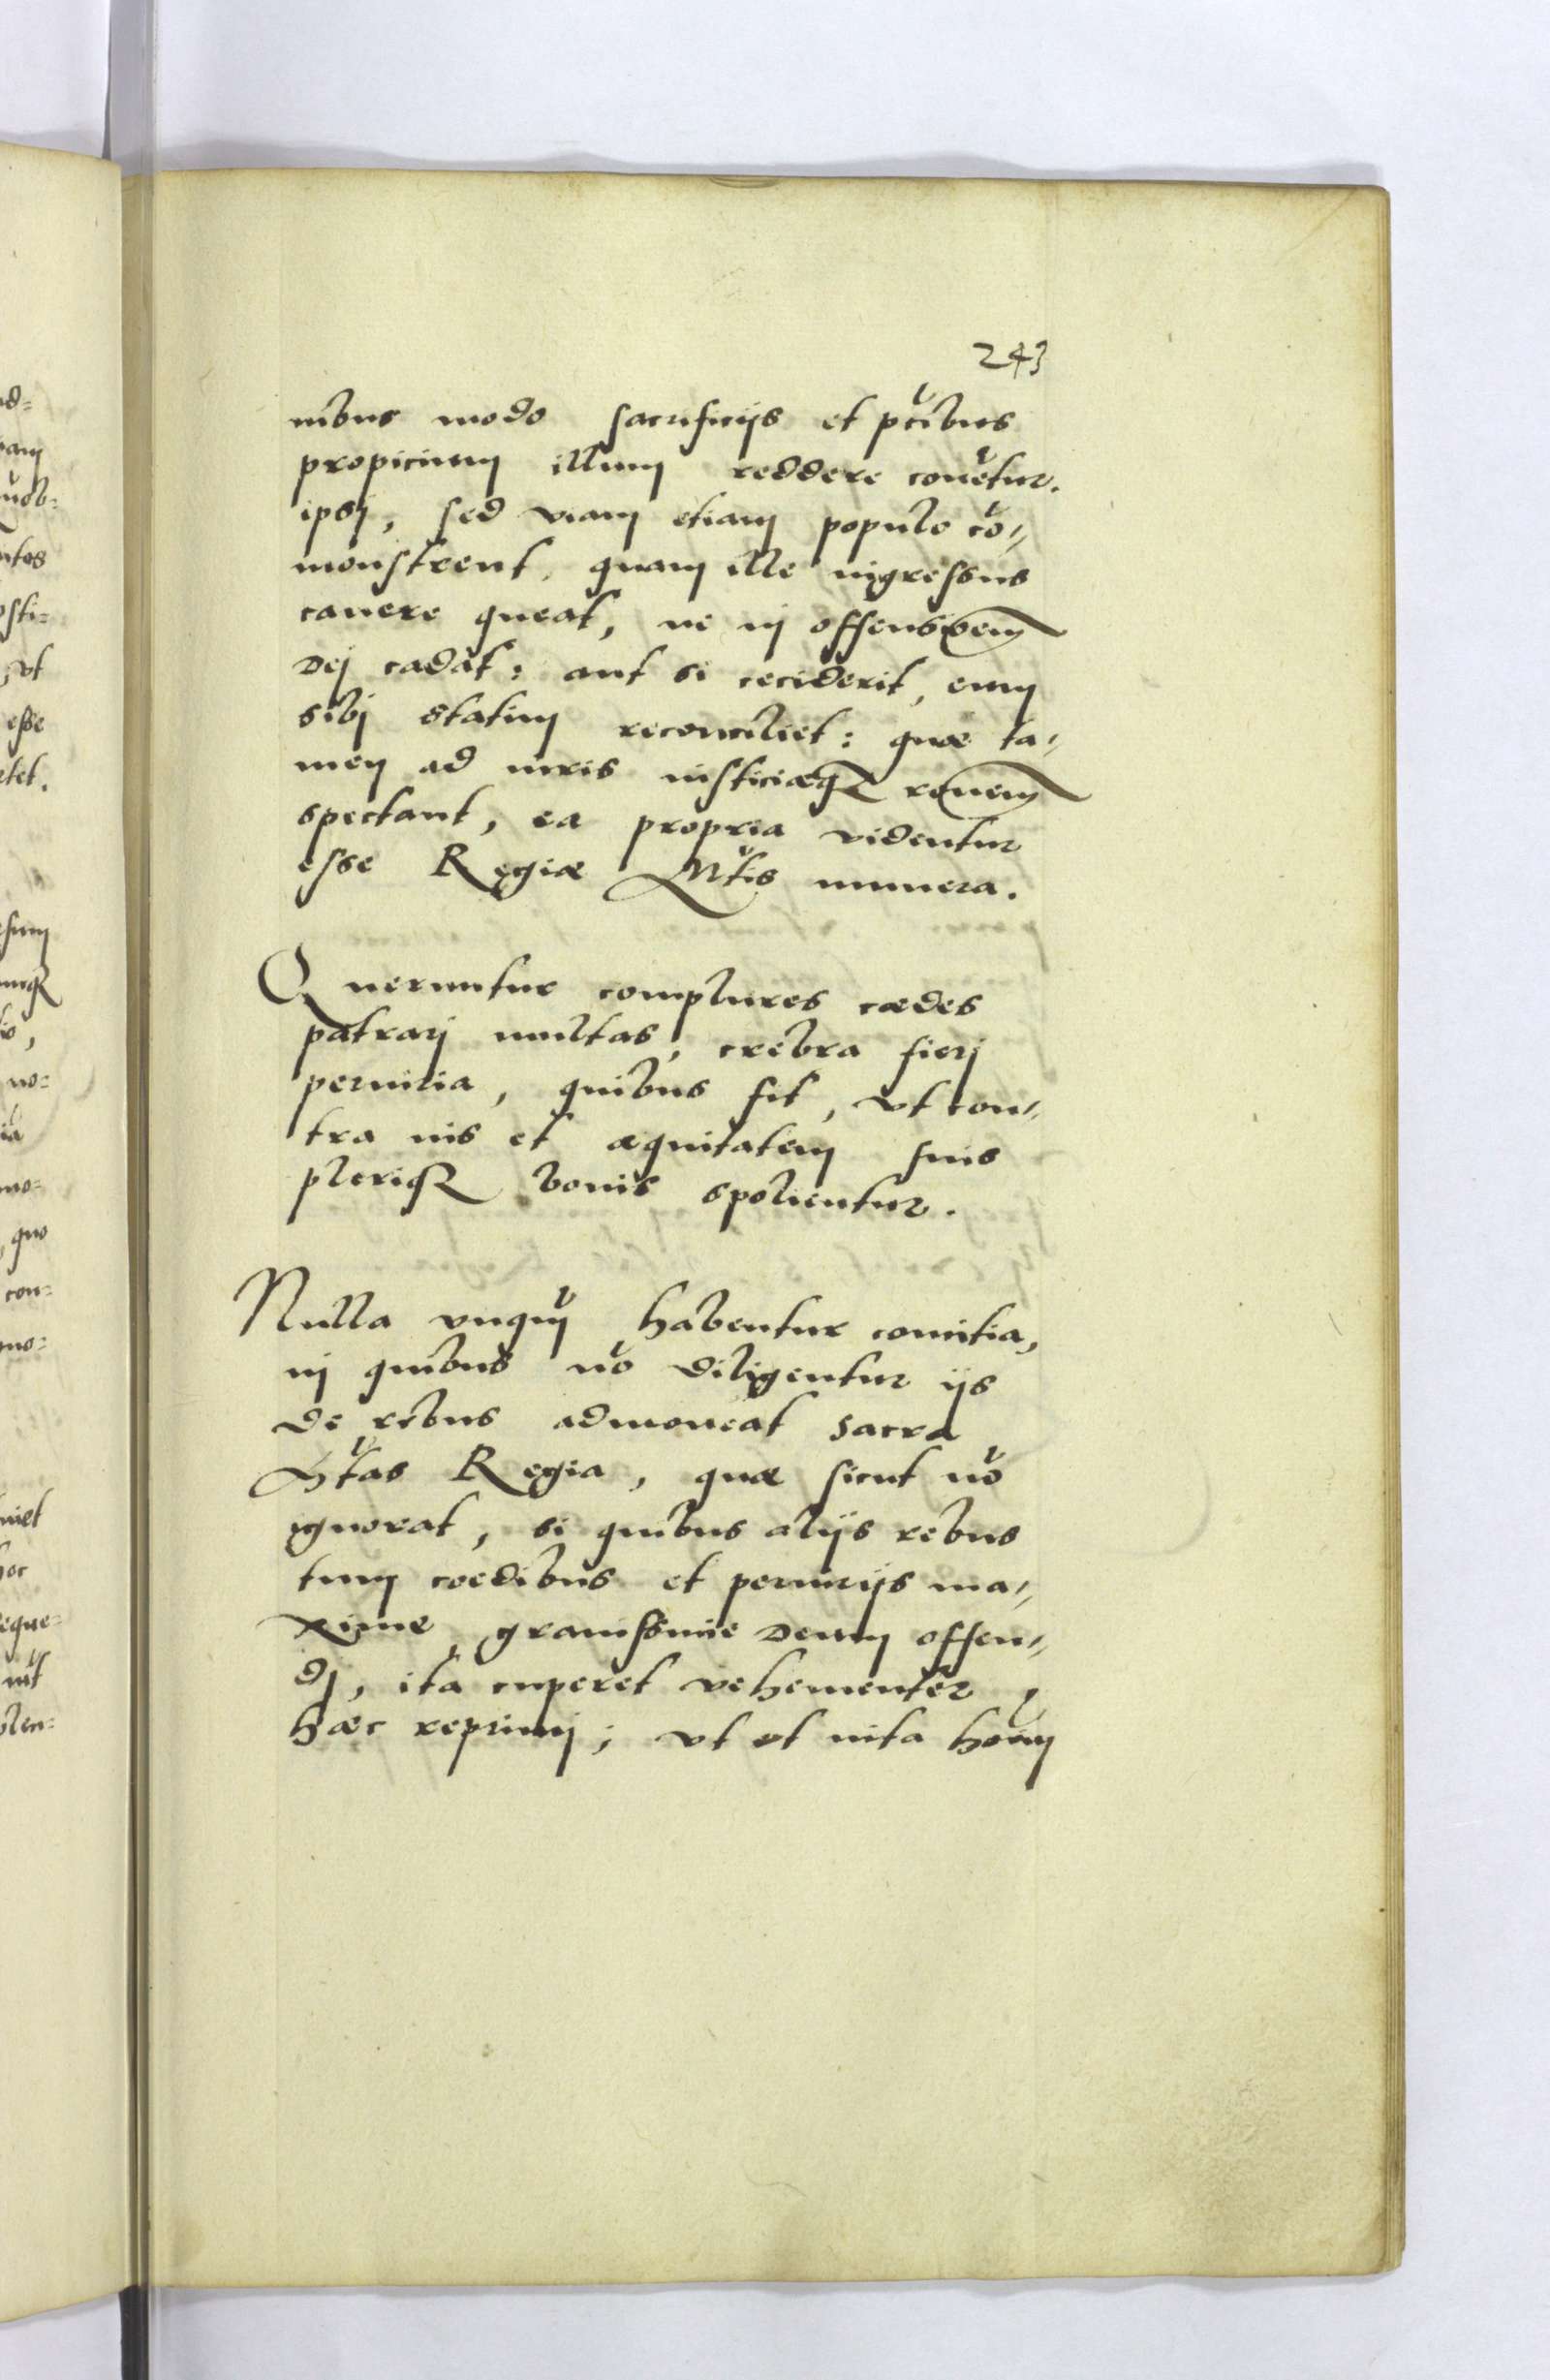 243
nibus modo sacrificijs et p̃cibus
propicium illum reddere conẽtur.
ipsj, sed viam etiam populo cõ-
monstrent, quam ille ingressus
cauere queat, ne in offensionem
Dej cadat: aut si ceciderit, eum
sibj statim reconciliet: quæ ta-
men ad iuris iusticiæq3 ro͠nem
spectant, ea propria videntur
esse Regiæ Mt̃is munera.
Queruntur complures cædes
patrarj multas, crebra fierj
periuria, quibus fit, vt con-
tra ius et æquitatem suis
pleriq3 bonis spolientur.
Nulla vnquã habentur comitia,
in quibus nõ diligentur ijs
de rebus admoneat Sacra
Mt̃as Regia, quæ sicut nõ
ignorat, si quibus alijs rebus
tum cædibus et periurijs ma-
xime grauissime Deum offen-
dj, ita cuperet vehementer
hæc reprimj; vt et uita hoĩm
ad=
esse
no=
quo
con=
mo=